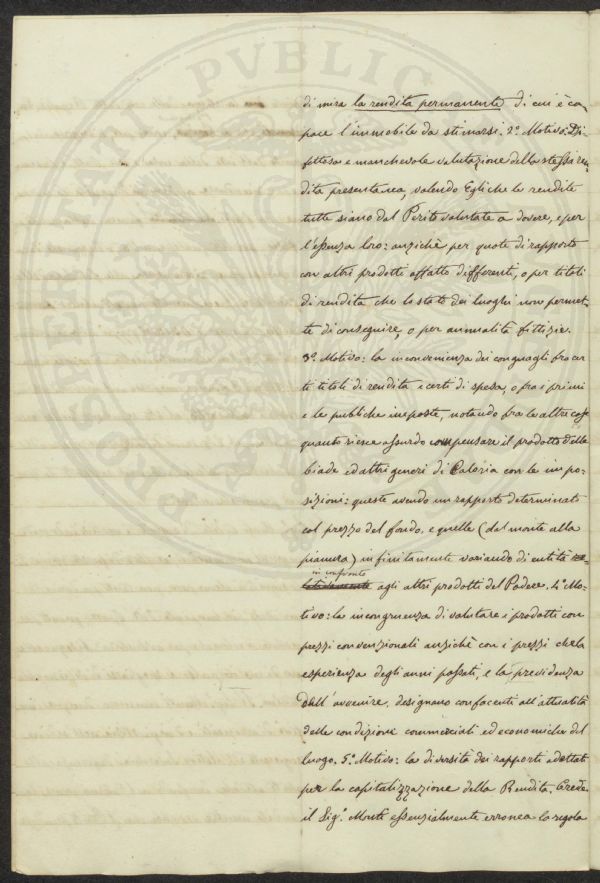 di mira la rendita permanente di cui è ca-
pace l'immobile da stimarsi. 2º Motivo. Di-
fettosa e manchevole valutazione della stessa ren-
dita presentanea, volendo Egli che le rendite
tutte siano dal Perito valutate a dovere, e per
l'essenza loro: anzichè per quote di rapporto
con altri prodotti affatto differenti, o per titoli
di rendita che lo stato dei luoghi non permet-
te di conseguire, o per annualità fittizie.
3º Motivo: la inconvenienza dei conguagli fra cer-
ti titoli di rendita e certi di spesa, o fra i primi
e le pubbliche imposte, notando fra le altre cose
quanto riesce assurdo compensare il prodotto delle
biade ed altri generi di Caloria con le impo-
sizioni: queste avendo un rapporto determinato
col prezzo del fondo, e quelle (dal monte alla
pianura) infinitamente variando di entità
in confronto
agli altri prodotti del Podere. 4º Mo-
tivo: la incongruenza di valutare i prodotti con
prezzi convenzionali anzichè con i prezzi che la
esperienza degli anni passati, e la previdenza
dell'avvenire, designano confacenti all'attualità
delle condizione commerciali ed economiche del
luogo. 5º Motivo: la diversità dei rapporti adottati
per la capitalizzazione della Rendita. Crede
il Sigr. Monti essenzialmente erronea la regola
PROSPERITATI PVBLICAE